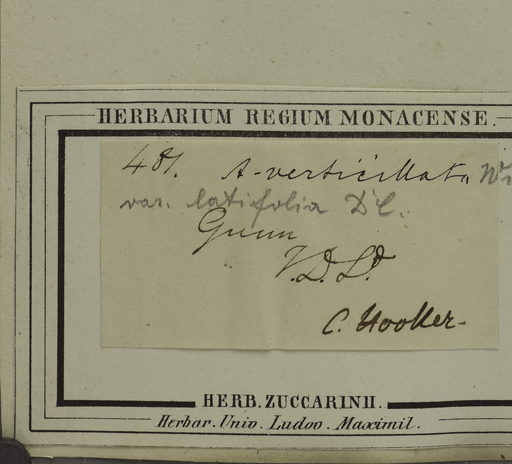 HERBARIUM REGIUM MONACENSE.
481. A. verticillata
var. latifolia DC.
Gunn
V.D.L.
C. Hooker.
HERB. ZUCCARINII.
Herbar. Univ. Ludov. Maximil.